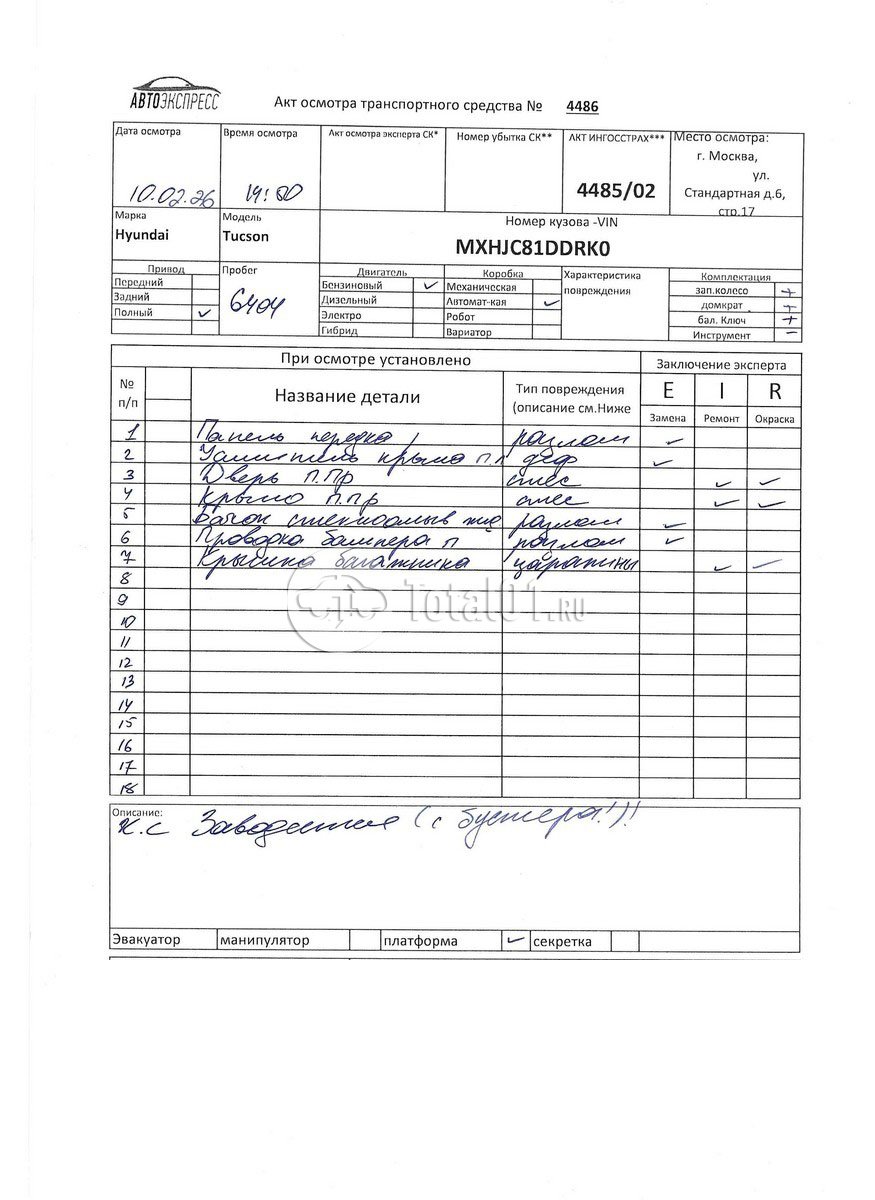 АВТОЭКСПРЕСС
Акт осмотра транспортного средства № 4486
Дата осмотра Время осмотра Акт осмотра эксперта СК* Номер убытка СК** АКТ ИНГОССТРАХ*** Место осмотра:
г. Москва,
ул.
10.02.26 14:00 4485/02 Стандартная д.6,
стр.17
Марка Модель Номер кузова -VIN
Hyundai Tucson MXHJC81DDRK0
Привод Пробег Двигатель Коробка Характеристика Комплектация
Передний Бензиновый ✓ Механическая повреждения зап.колесо +
Задний 6404 Дизельный Автомат-кая ✓ домкрат +
Полный ✓ Электро Робот бал. Ключ +
Гибрид Вариатор Инструмент –
При осмотре установлено Заключение эксперта
№ п/п Название детали Тип повреждения (описание см.Ниже E I R
Замена Ремонт Окраска
1 Панель передка разлом ✓
2 Усилитель крыла п.л деф ✓
3 Дверь П.Пр смес ✓ ✓
4 Крыло п.пр смес ✓ ✓
5 Бачок стеклоомыв разлом ✓
6 Проводка бампера п разлом ✓
7 Крышка багажника царапины ✓ ✓
8
Total01.RU
9
10
11
12
13
14
15
16
17
18
Описание:
К.С Заводится (с бустера!)!
Эвакуатор манипулятор платформа ✓ секретка